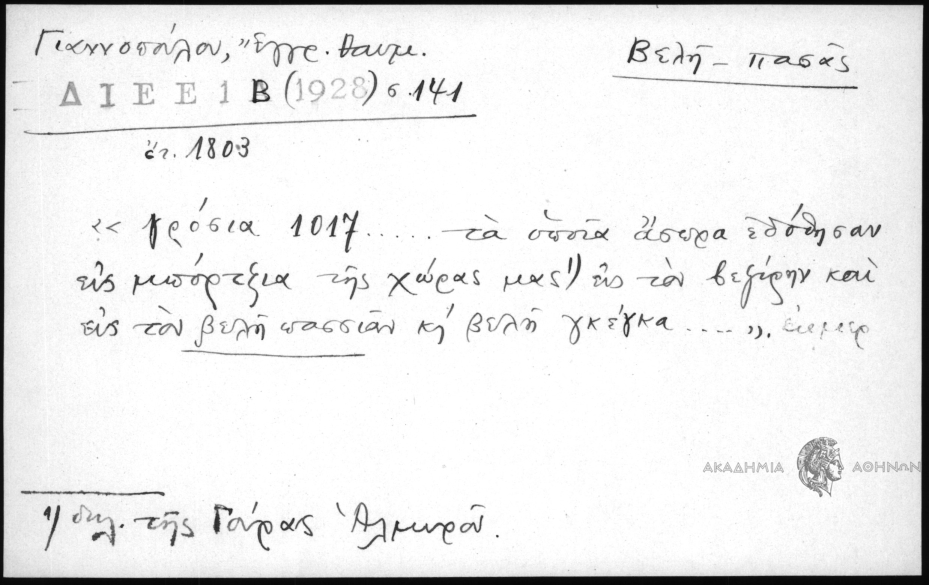 Γιαννοπούλου, Ἔγγρ. Θαυμ.
Βελῆ - πασᾶς
ΔΙΕΕ 1 Β (1928) σ. 141
ἔτ. 1803
« γρόσια 1017 ..... τὰ ὁποῖα ἄσπρα ἐδόθησαν
εἰς μπόρτζια τῆς χώρας μας 1) εἰς τὸν βεζίρην καὶ
εἰς τὸν βελῆ πασσιᾶν κῂ βελῆ γκέγκα .... ».
ΑΚΑΔΗΜΙΑ ΑΘΗΝΩΝ
1) δηλ. τῆς Γούρας Ἁλμυροῦ.